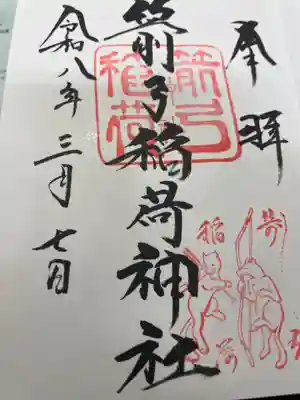 奉拝
箭弓稲荷神社
箭弓
稲荷
令和八年三月七日
稲荷
箭弓